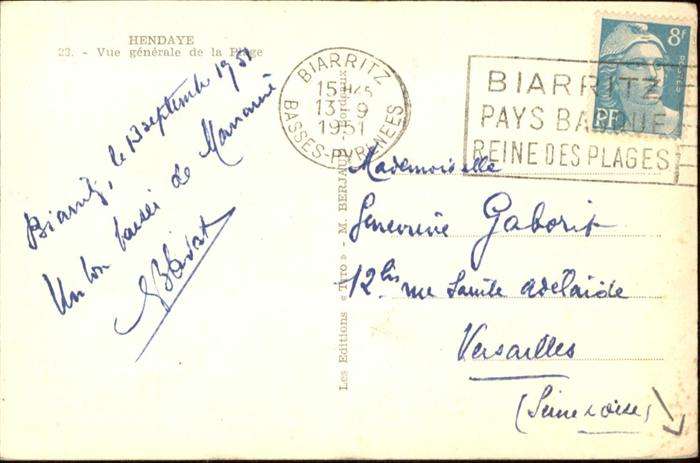 HENDAYE
23. - Vue générale de la Plage
Biarritz, le 13 septembre 1951
Un bon baiser de Marraine
BIARRITZ
15H45
13-9
1951
BASSES-PYRENEES
8F
POSTES
RF
BIARRITZ
PAYS BASQUE
REINE DES PLAGES
Les Editions « Tito » - M. BERJAUD - Bordeaux
Mademoiselle
Geneviève Gaborit
12bis rue Sainte Adelaide
Versailles
(Seine & Oise)